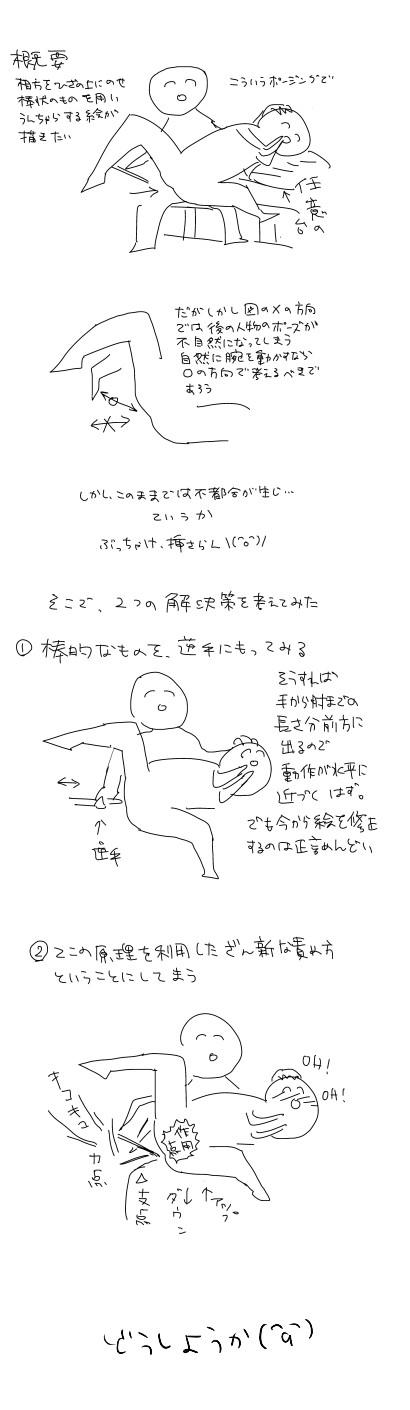 概要
相方をひざの上にのせ
棒状のものを用い
うんちゃらする絵が
描きたい
こういうポージングで
↑任意の台
だがしかし図の×の方向
では後の人物のポーズが
不自然になってしまう
自然に腕を動かすなら
○の方向で考えるべきで
あろう
しかし、このままでは不都合が生じ…
ていうか
ぶっちゃけ、挿さらん\(^o^)/
そこで、2つの解決策を考えてみた
① 棒的なものを、逆手にもってみる
そうすれば
手から肘までの
長さ分前方に
出るので
動作が水平に
近づくはず。
でも今から絵を修正
するのは正直めんどい
↑逆手
② てこの原理を利用したざん新な責め方
ということにしてしまう
OH!
OH!
キコキコ
力点
△支点
作用点
ダウン↓
↑アップ
どうしようか(^q^)